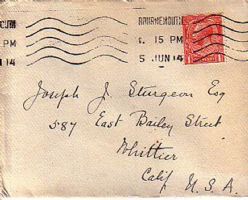 BOURNEMOUTH
1. 15 PM
5 JUN 14
PM
14
Joseph J. Sturgeon Esq
587 East Bailey Street
Whittier
Calif U.S.A.